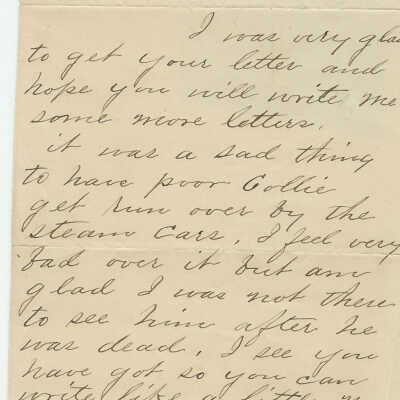 I was very glad
to get your letter and
hope you will write me
some more letters.
it was a sad thing
to have poor Collie
get run over by the
steam cars. I feel very
bad over it but am
glad I was not there
to see him after he
was dead. I see you
have got so you can
write like a little